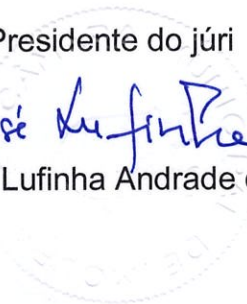 Presidente do júri
sé Lufinha
Lufinha Andrade